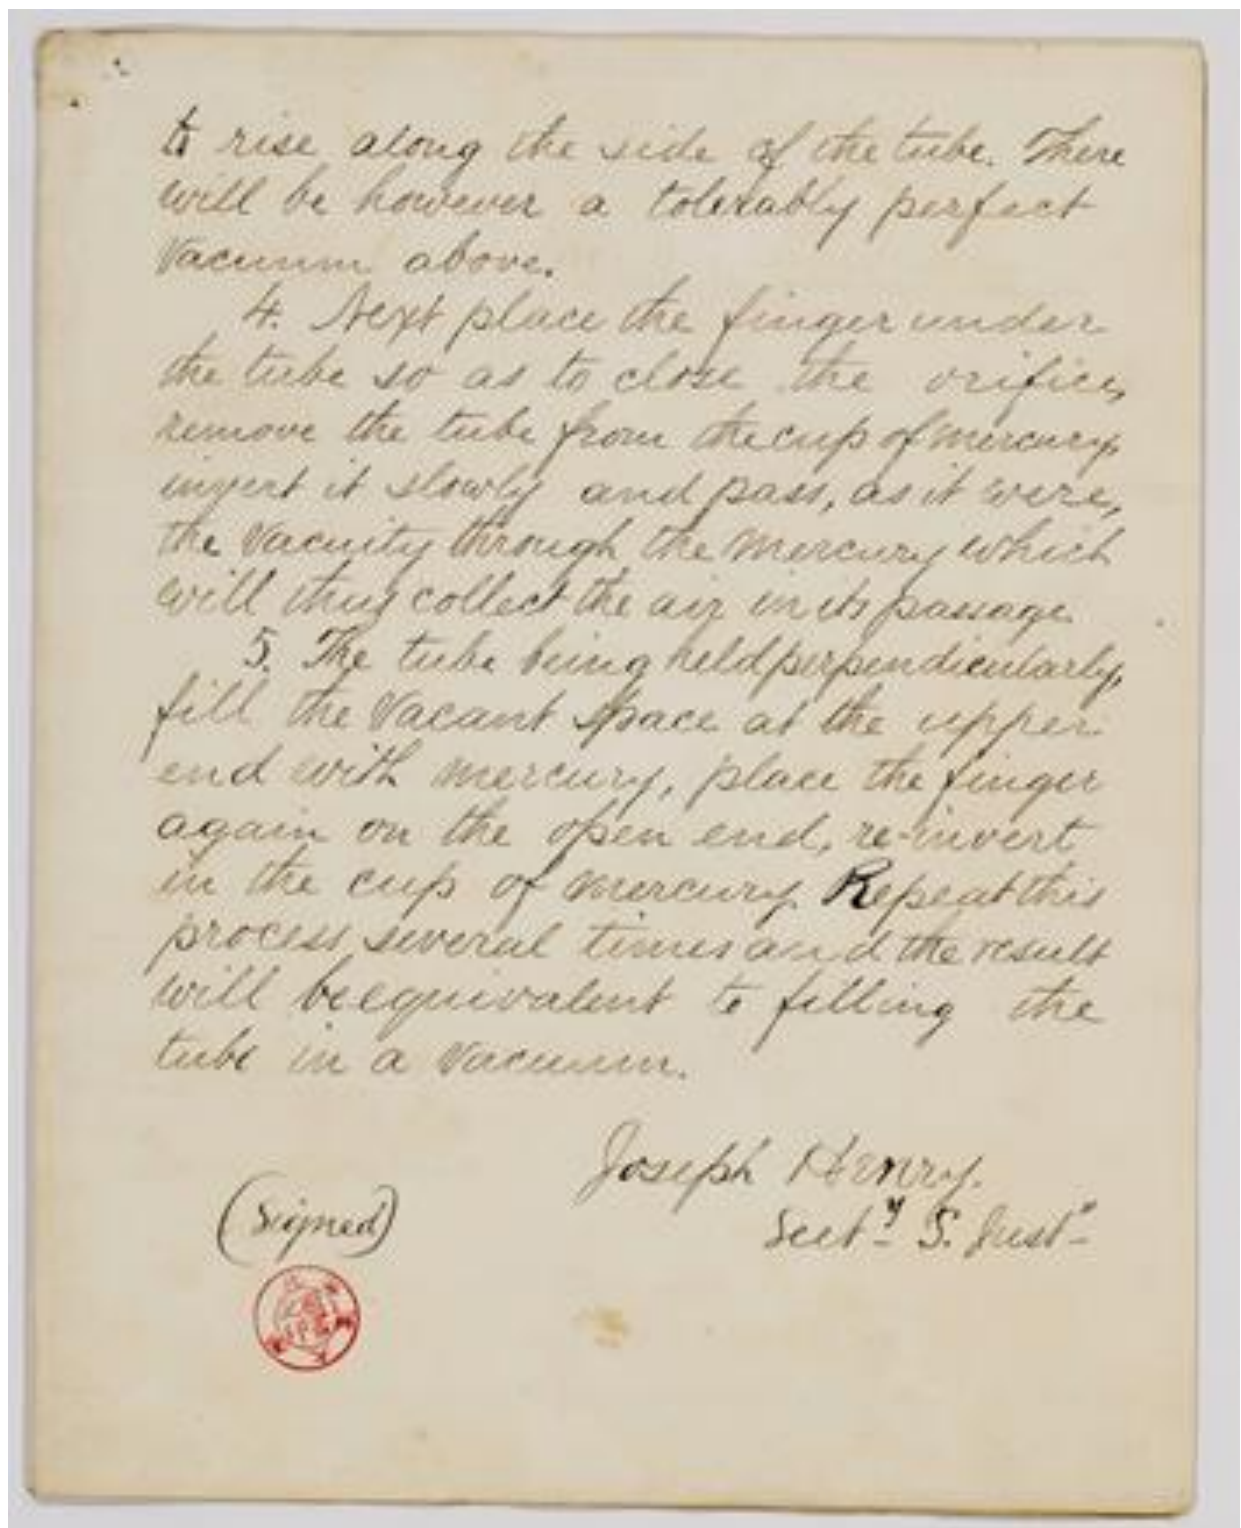 to rise along the side of the tube. There
will be however a tolerably perfect
Vacuum above.
4. Next place the finger under
the tube so as to close the orifice,
remove the tube from the cup of mercury,
invert it slowly and pass, as it were,
the Vacuity through the mercury which
will thus collect the air in its passage.
5. The tube being held perpendicularly,
fill the Vacant space at the upper
end with mercury, place the finger
again on the open end, re-invert
in the cup of mercury. Repeat this
process several times and the result
will be equivalent to filling the
tube in a Vacuum.
Joseph Henry.
(Signed)
Secty S. Inst